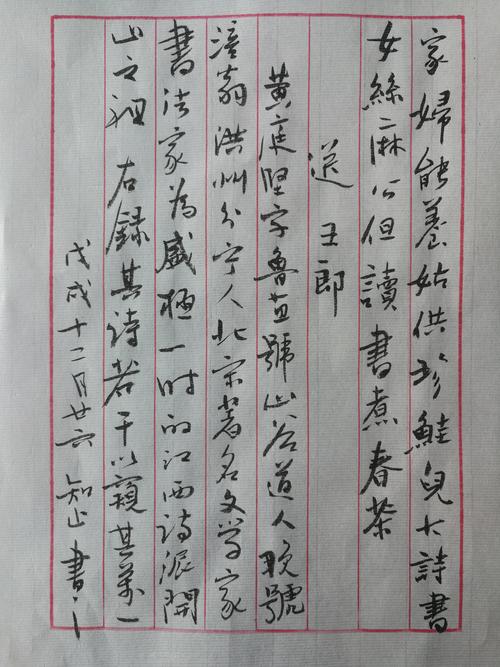 家婦能養姑供珍鮭兒大詩書
女絲麻公但讀書煮春茶
送王郎
黄庭堅字魯直號山谷道人晚號
涪翁洪州分宁人北宋著名文学家
書法家為盛極一时的江西詩派開
山之祖右録其詩若干以窺其萬一
戊戌十二月廿六知止書